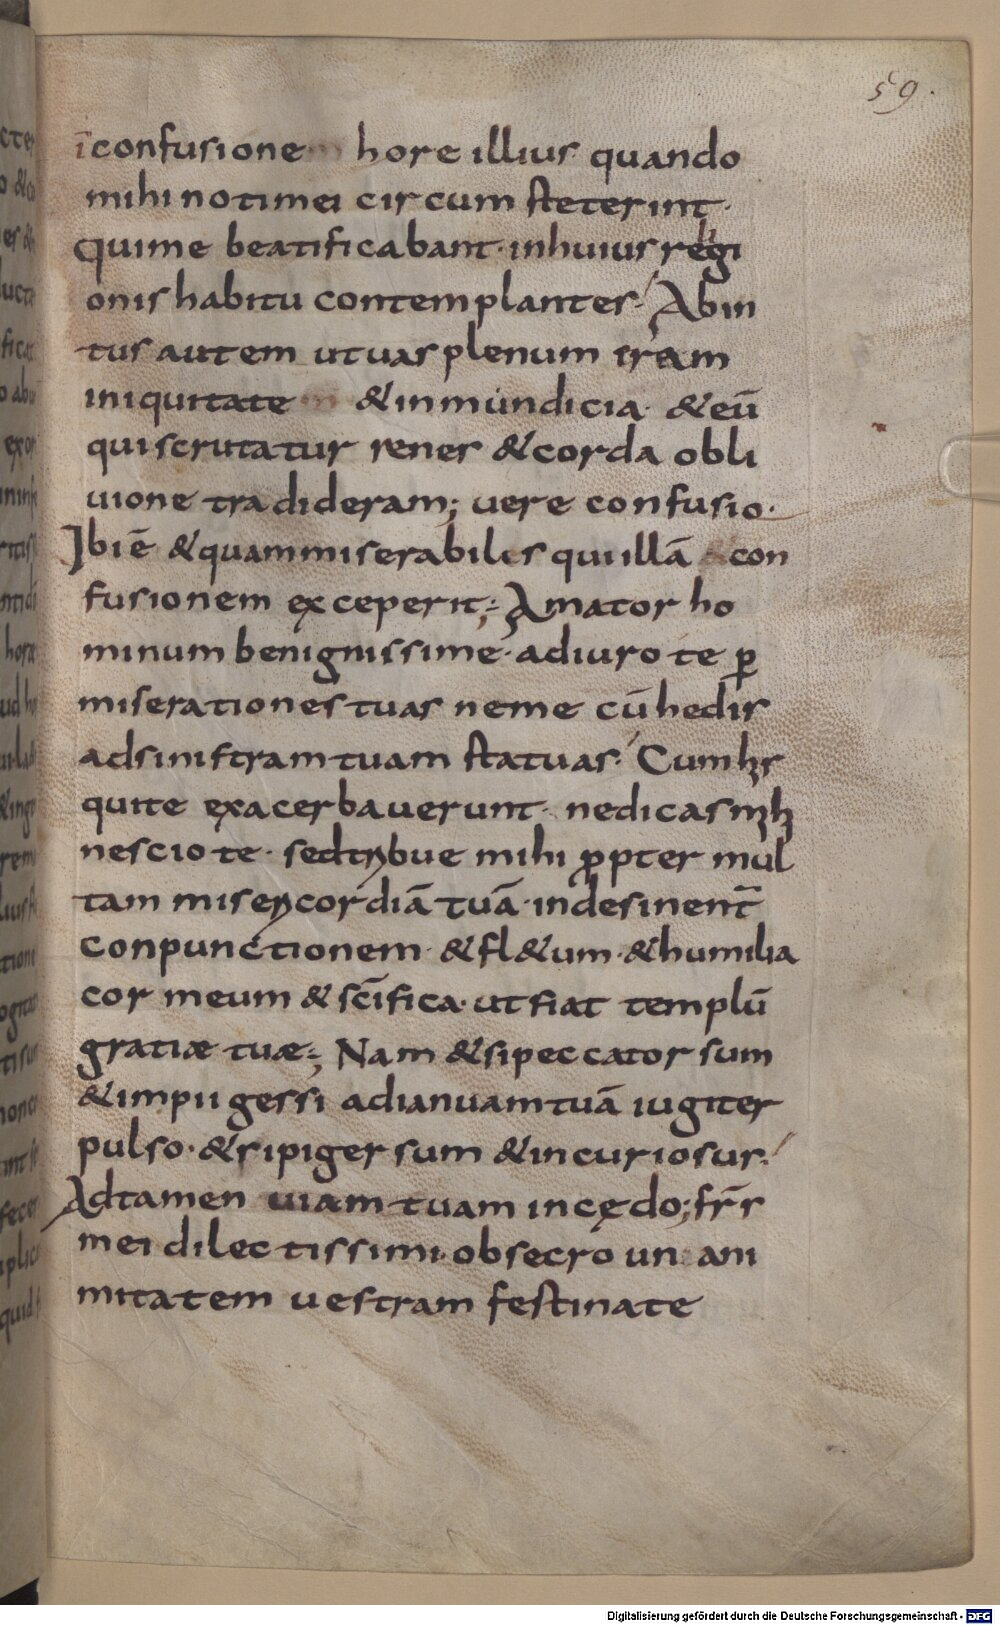 59.
īconfusione hore illius quando
mihi noti mei circum steterint·
Qui me beatificabant· in huius regi
onis habitu contemplantes· Ab in
tus autem ut uas plenum eram
iniquitate & inmundicia· & eū
qui scrutatur renes & corda obli
uione tradideram; uere confusio·
Ibi ē & quam miserabiles qui illā con
fusionem exceperit; Amator ho
minum benignissime· adiuro te ꝑ
miserationes tuas ne me cū hedis
ad sinistram tuam statuas· Cum
qui te exacerbauerunt· ne dicas
nescio te· sed tribue mihi ꝓpter mul
tam misericordiā tuā· indesinent̄
conpunctionem· & fl&um· & humilia
cor meum & sc̄ifica· ut fiat templū
gratiæ tuæ; Nam & si peccator sum
& impii gessi ad ianuam tuā iugiter
pulso· & si piger sum & incuriosus·
Adtamen uiam tuam incędo; fr̄s
mei dilectissimi· obsecro un ani
mitatem uestram festinate
Digitalisierung gefördert durch die Deutsche Forschungsgemeinschaft - DFG